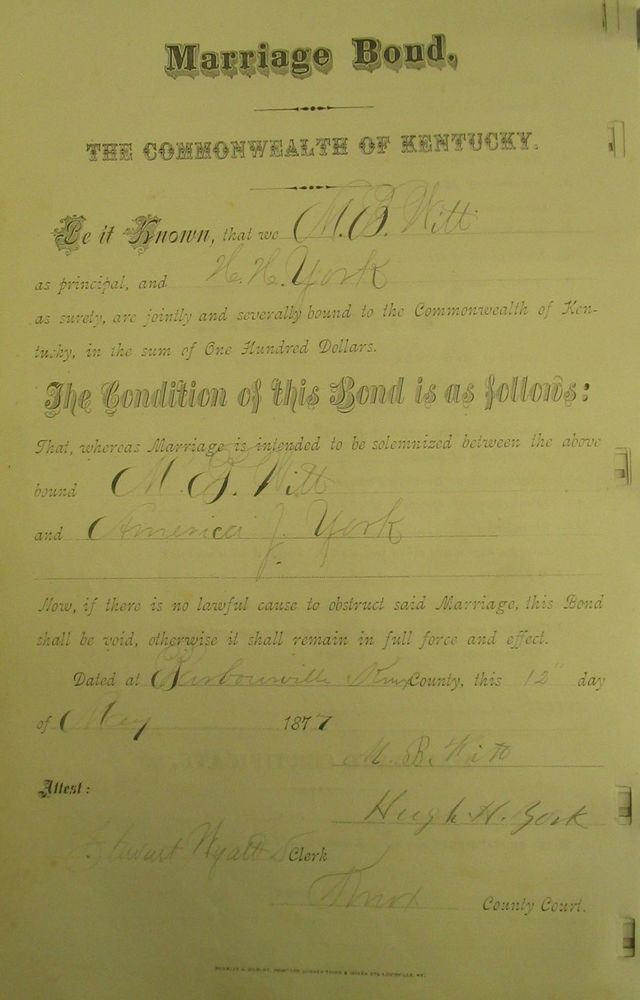 Marriage Bond.
THE COMMONWEALTH OF KENTUCKY.
Be it Known, that we M. B. Witt
as principal, and H. H. York
as surety, are jointly and severally bound to the Commonwealth of Ken-
tucky, in the sum of One Hundred Dollars.
The Condition of this Bond is as follows:
That, whereas Marriage is intended to be solemnized between the above
bound M. B. Witt
and America J. York
Now, if there is no lawful cause to obstruct said Marriage, this Bond
shall be void, otherwise it shall remain in full force and effect.
Dated at Barbourville Knox County, this 12" day
of May 1877
M. B. Witt
Attest:
Hugh H. York
Wyatt Clerk
Knox County Court.